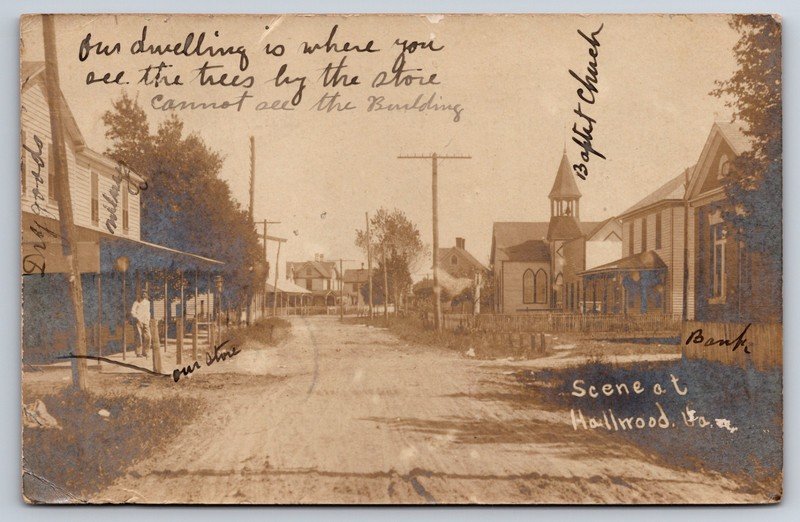 Our dwelling is where you
see the trees by the store
Cannot see the Building
Baptist Church
Dry Goods
our store
Bank
Scene at
Hallwood, Va.